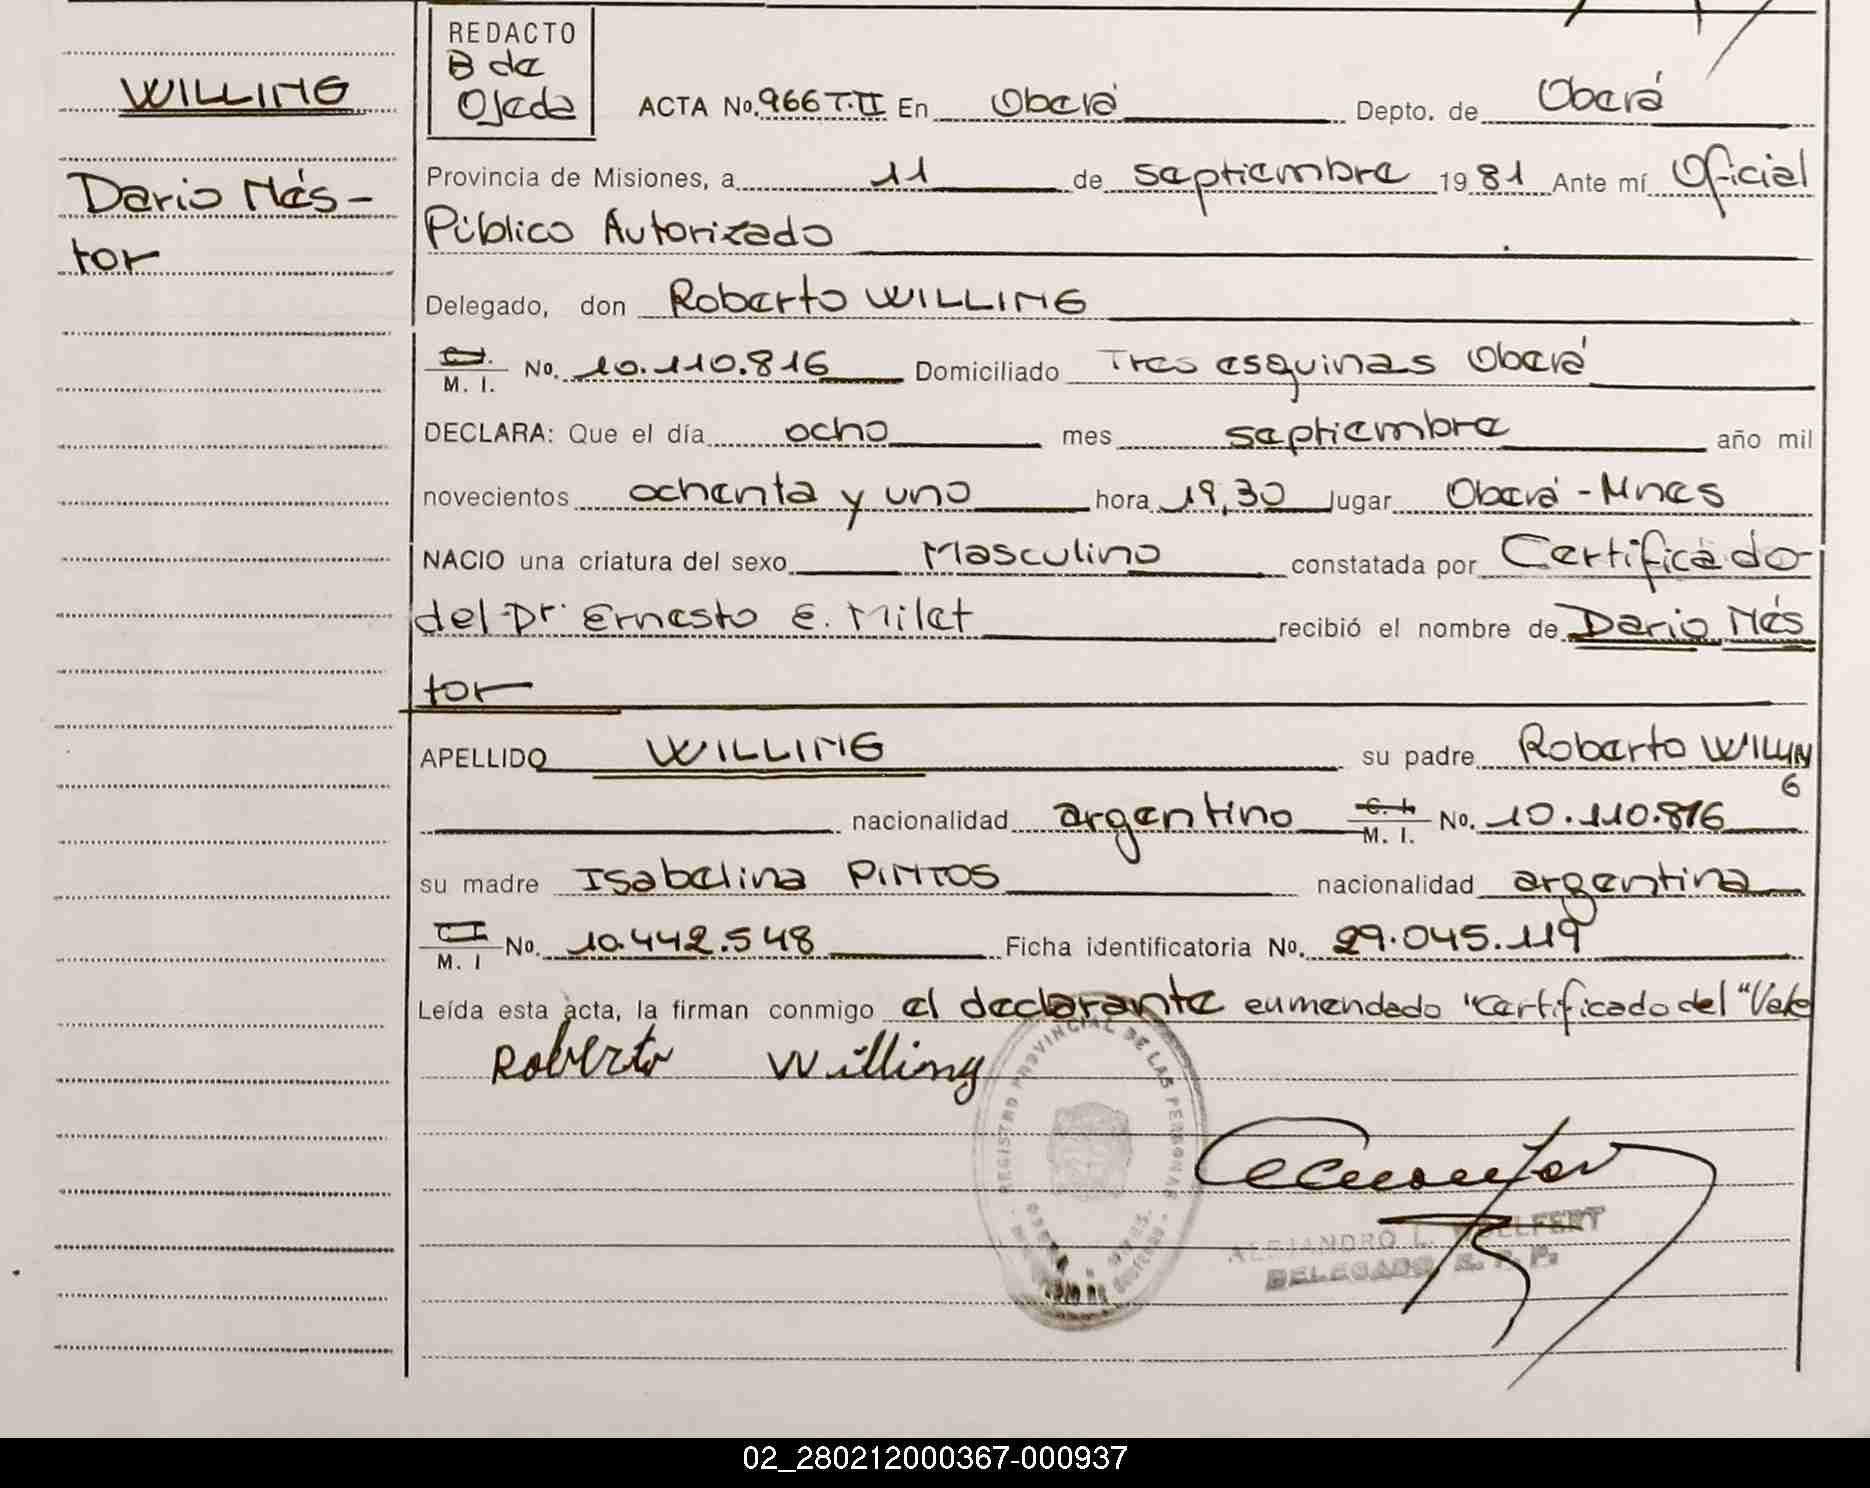 WILLING
Dario Nés-
tor
REDACTO
B de
Ojeda
ACTA No. 966 T.II En Oberá Depto. de Oberá
Provincia de Misiones, a 11 de septiembre 1981 Ante mí Oficial
Público Autorizado
Delegado, don Roberto WILLING
C.I. M. I. No. 10.110.816 Domiciliado Tres esquinas Oberá
DECLARA: Que el día ocho mes septiembre año mil
novecientos ochenta y uno hora 19,30 lugar Oberá - Mnes
NACIO una criatura del sexo Masculino constatada por Certificado
del Dr Ernesto E. Milet recibió el nombre de Dario Nés
tor
APELLIDO WILLING su padre Roberto WILLIN
G
nacionalidad argentino C. I. M. I. No. 10.110.816
su madre Isabelina PINTOS nacionalidad argentina
C I M. I No. 10.442.548 Ficha identificatoria No. 29.045.119
Leída esta acta, la firman conmigo el declarante eumendado "Certificado del "Vale
Roberto Willing
REGISTRO PROVINCIAL DE LAS PERSONAS
ALEJANDRO L. WOLFERT
DELEGADO R. P. P.
02_280212000367-000937